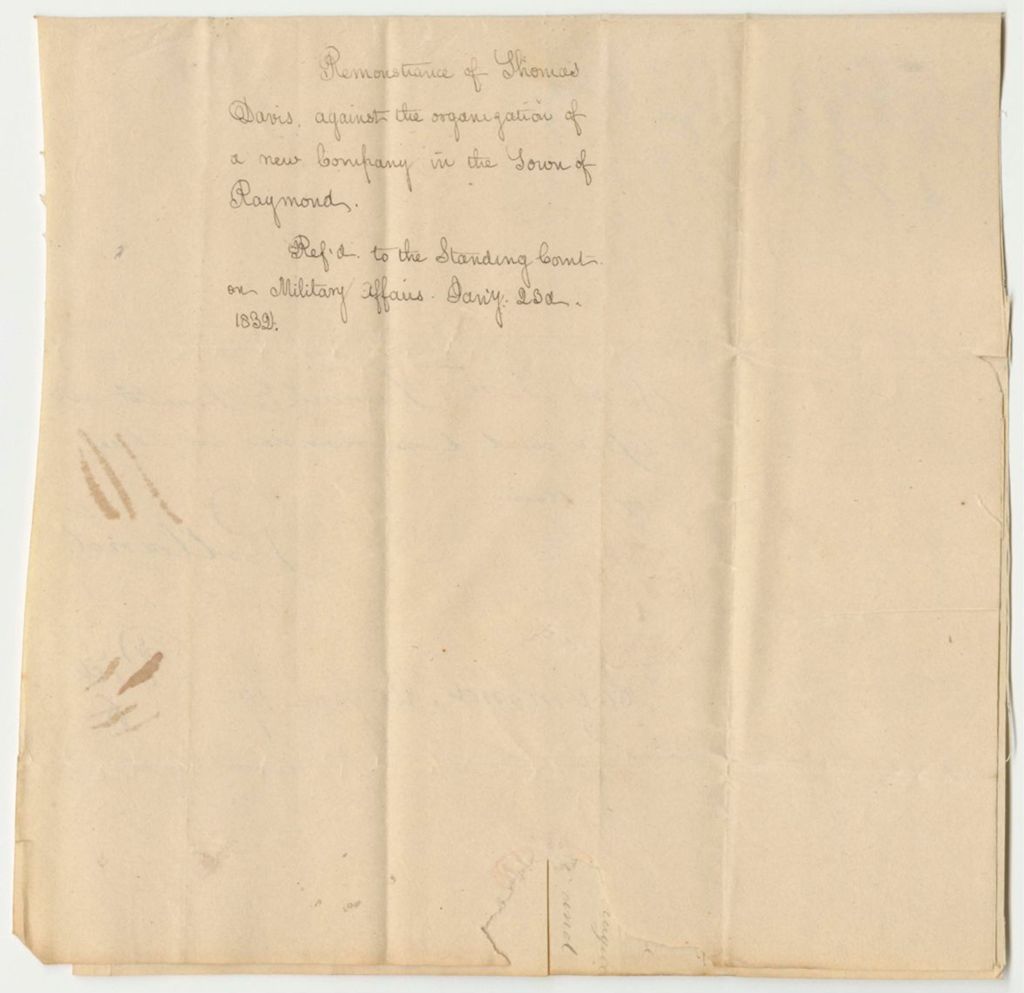 Remonstrance of Thomas
Davis, against the organization of
a new Company in the Town of
Raymond.
Ref'd. to the Standing Comt.
on Military Affairs. Jan'y. 23d.
1832.